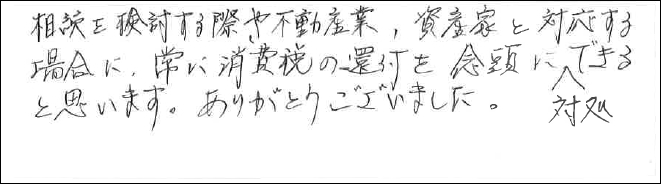 相談を検討する際や不動産業，資産家と対応する
場合に，常に消費税の還付を念頭に対処できる
と思います。ありがとうございました。